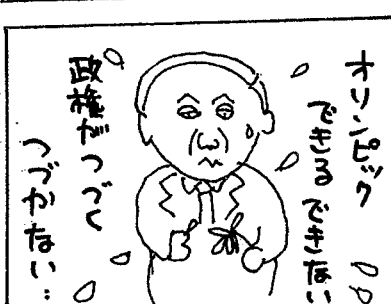 オリンピック
できるできない
政権がつづく
つづかない…